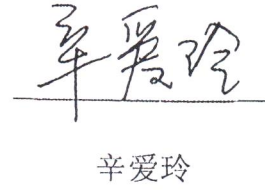 辛爱玲
辛爱玲